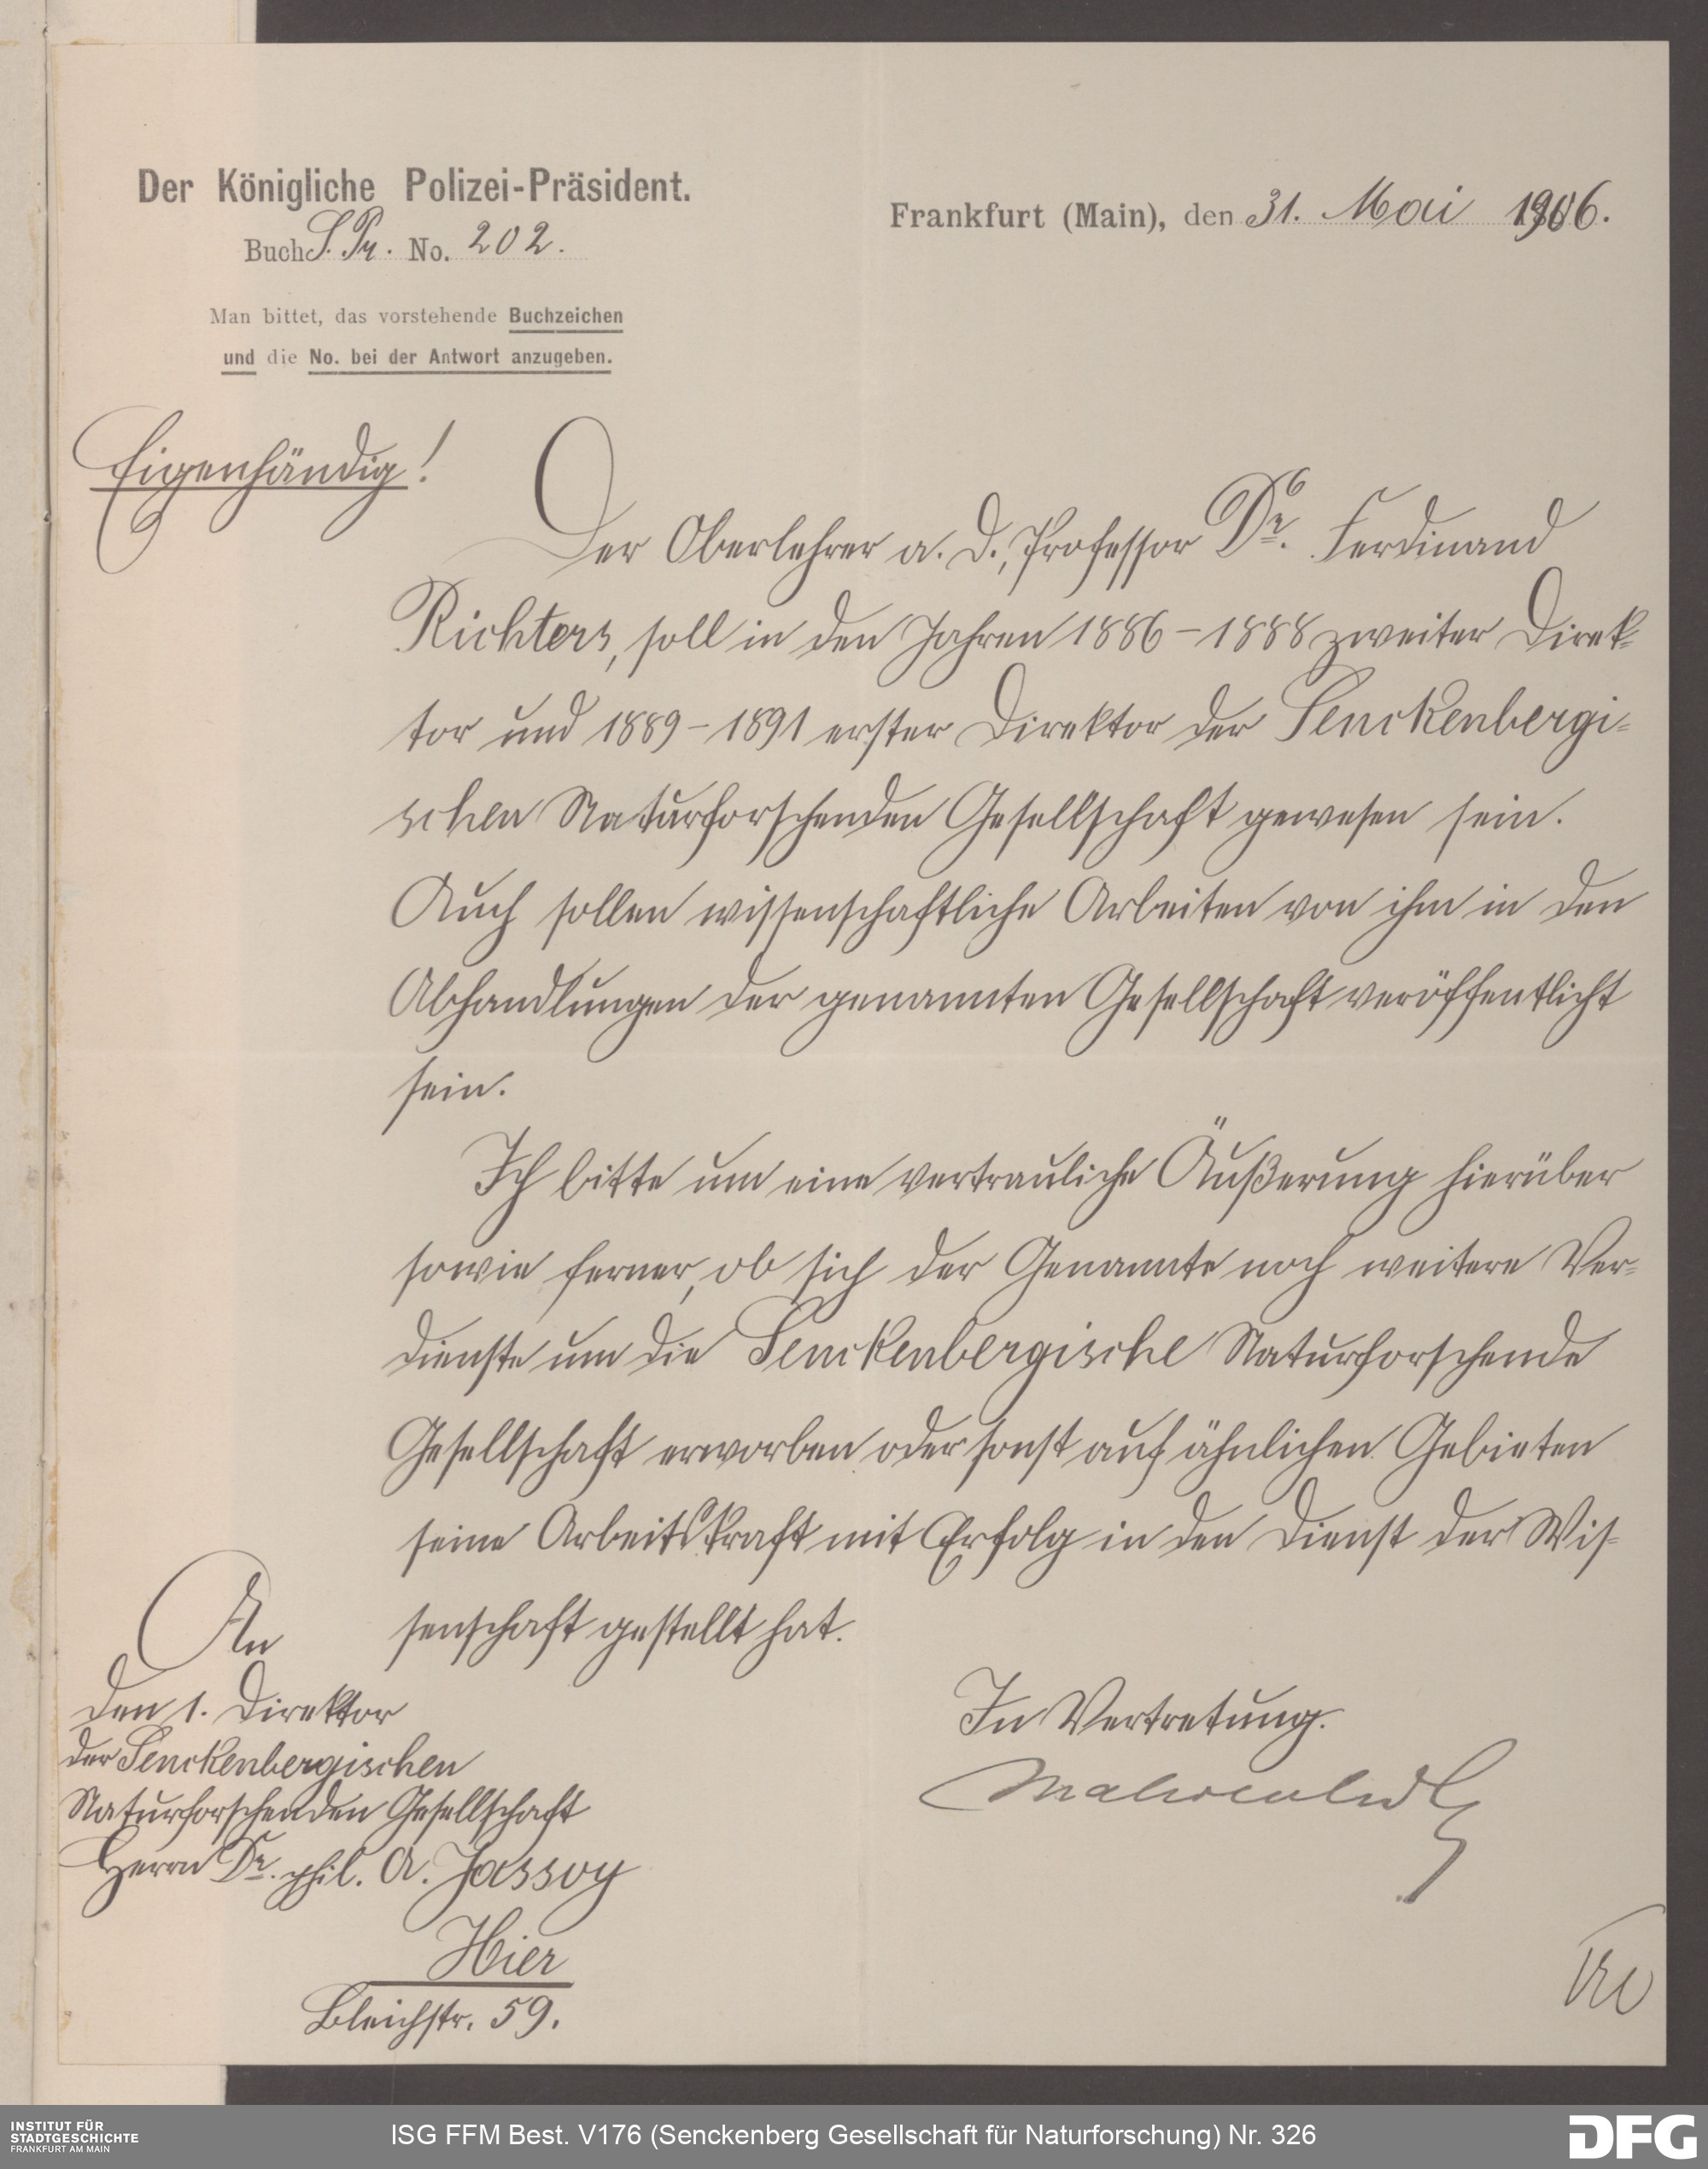 Der Königliche Polizei-Präsident.
Buch S. Pr. No. 202.
Man bittet, das vorstehende Buchzeichen
und die No. bei der Antwort anzugeben.
Frankfurt (Main), den 31. Mai 1906.
Eigenhändig!
Der Oberlehrer a. D., Professor Dr. Ferdinand
Richters, soll in den Jahren 1886-1888 zweiter Direk-
tor und 1889-1891 erster Direktor der Senckenbergi-
schen Naturforschenden Gesellschaft gewesen sein.
Auch sollen wissenschaftliche Arbeiten von ihm in den
Abhandlungen der genannten Gesellschaft veröffentlicht
sein.
Ich bitte um eine vertrauliche Äußerung hierüber
sowie ferner, ob sich der Genannte noch weitere Ver-
dienste um die Senckenbergische Naturforschende
Gesellschaft erworben oder sonst auf ähnlichen Gebieten
seine Arbeitskraft mit Erfolg in den Dienst der Wis-
senschaft gestellt hat.
In Vertretung.
An
den 1. Direktor
der Senckenbergischen
Naturforschenden Gesellschaft
Herrn Dr. phil. A. Jassoy
Hier
Bleichstr. 59.
INSTITUT FÜR
STADTGESCHICHTE
FRANKFURT AM MAIN
ISG FFM Best. V176 (Senckenberg Gesellschaft für Naturforschung) Nr. 326
DFG